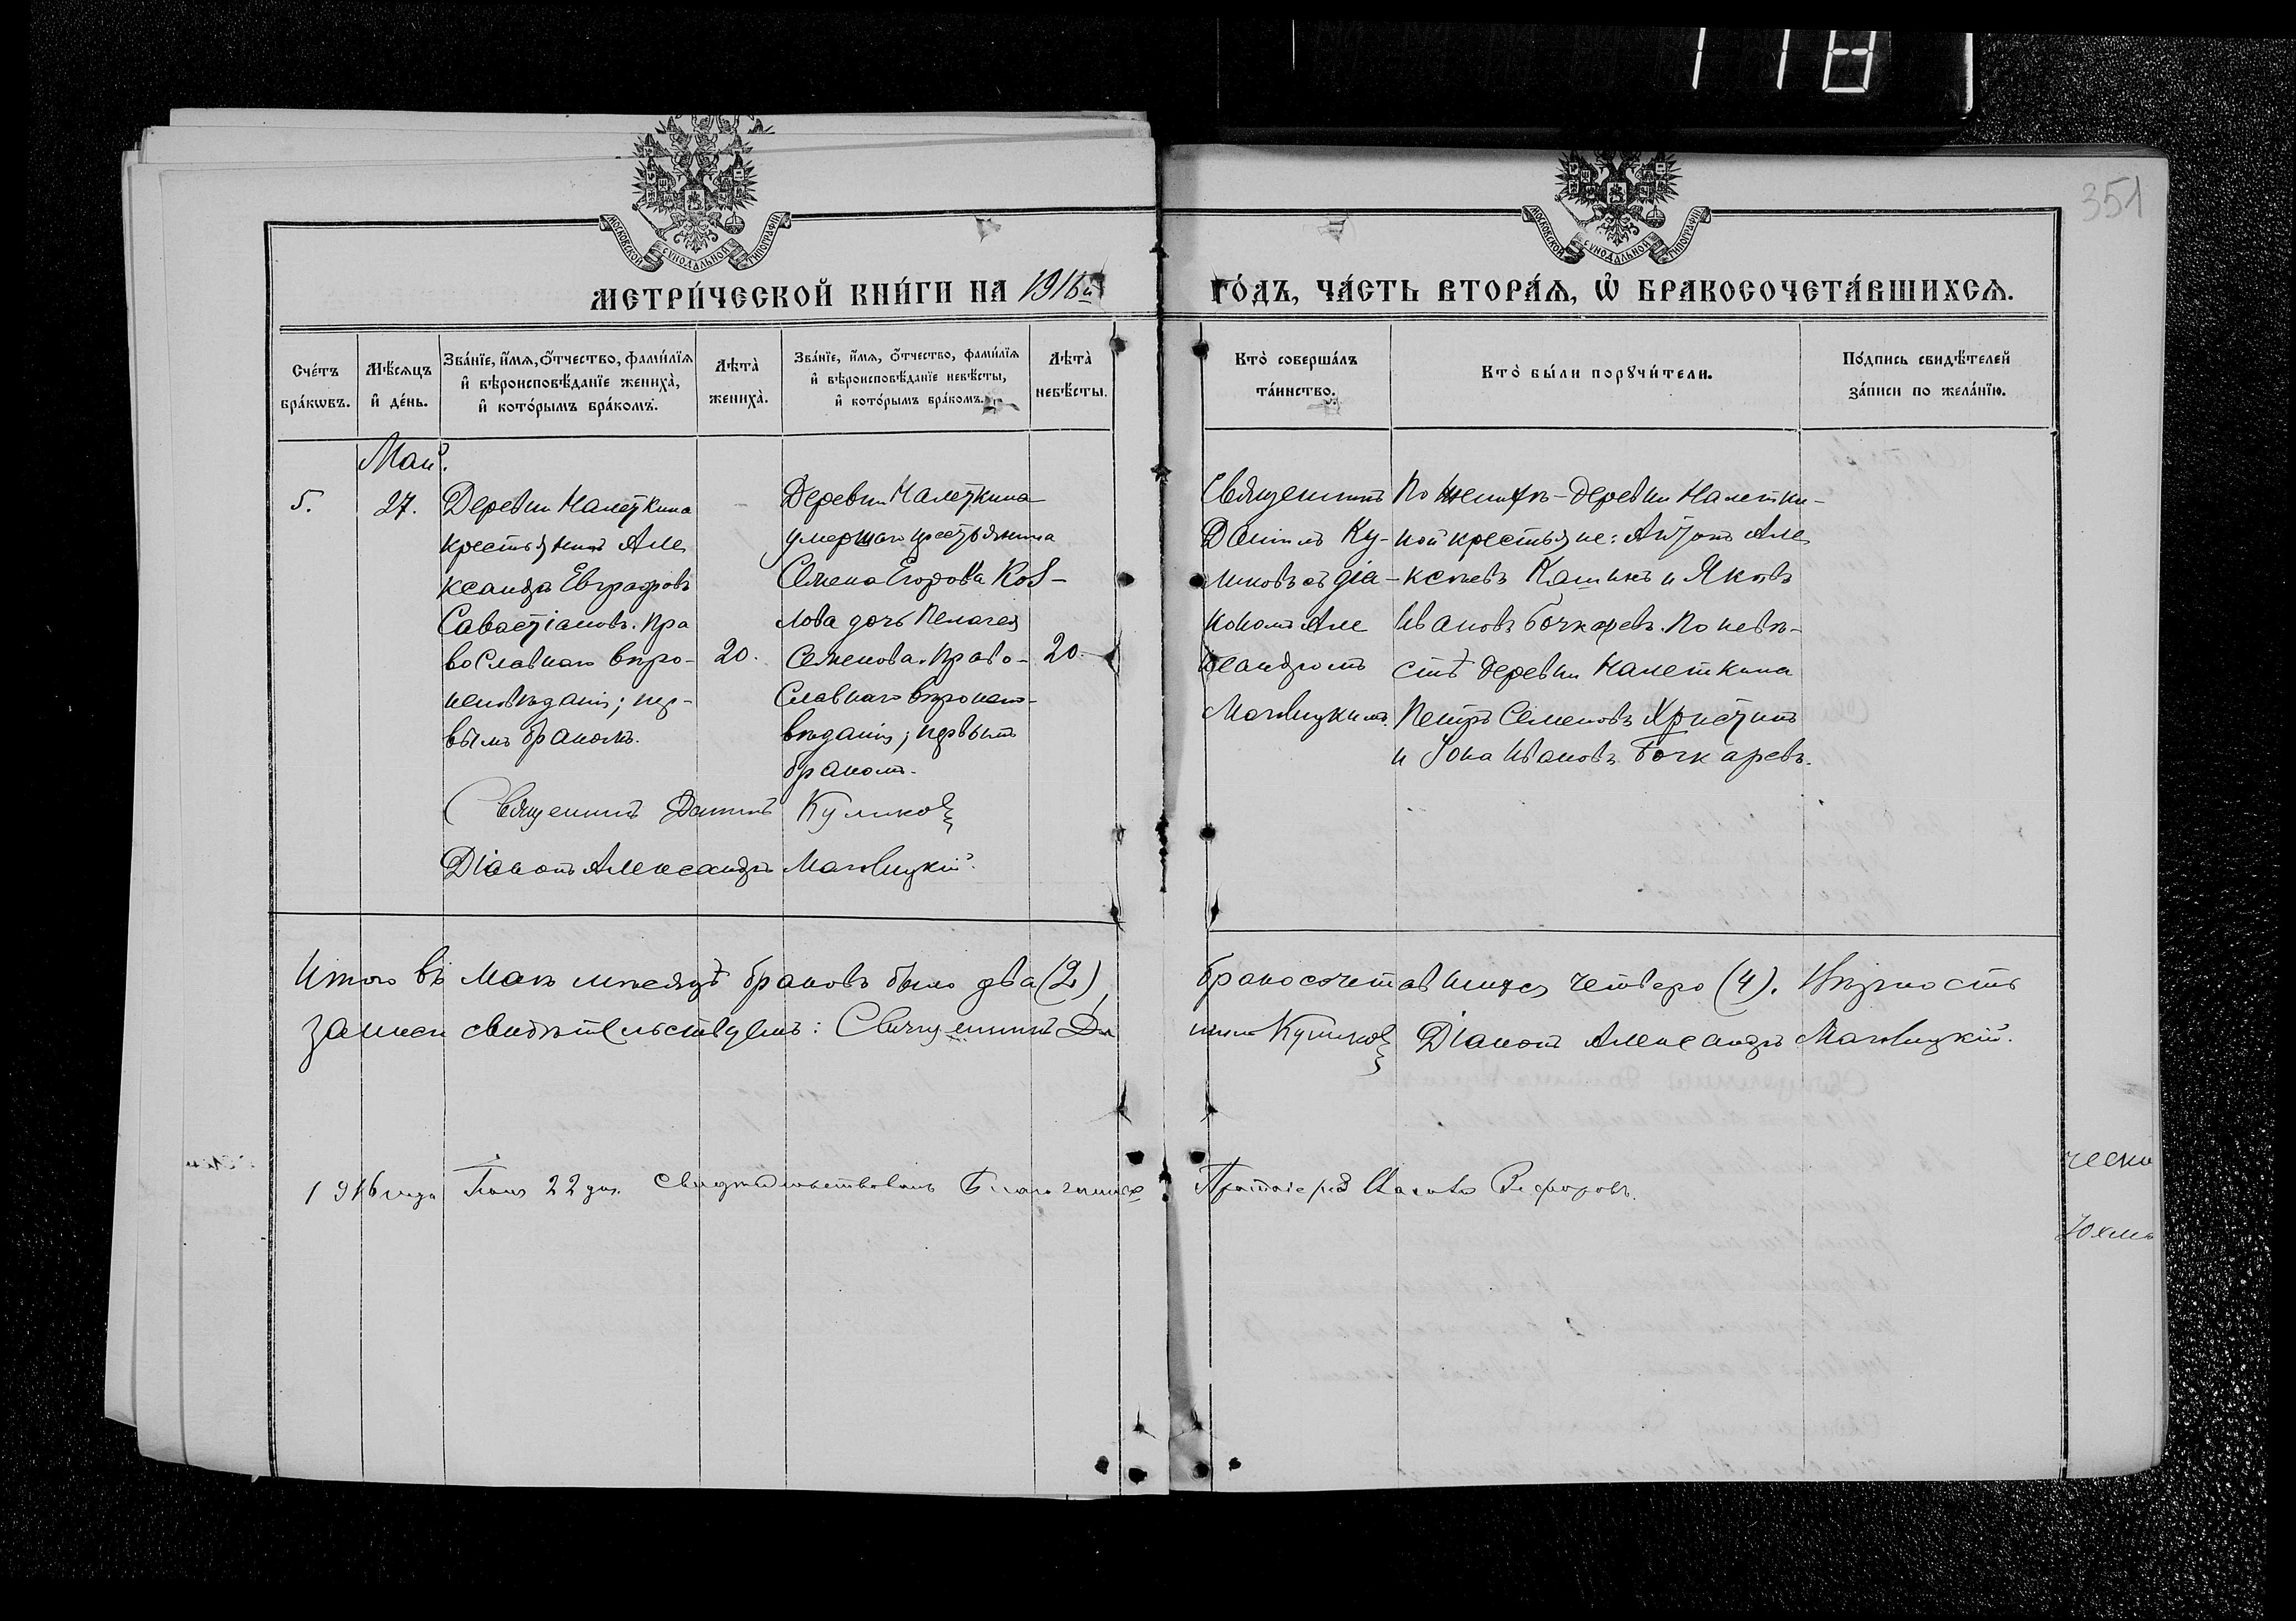 118
351
МОСКОВСКОЙ СУНОДАЛЬНОЙ ТИПОГРАФІИ
МОСКОВСКОЙ СУНОДАЛЬНОЙ ТИПОГРАФІИ
МЕТРИ́ЧЕСКОЙ КНИ́ГИ НА 1916й ГО́ДЪ, ЧА́СТЬ ВТОРА́Ѧ, Ѽ БРАКОСОЧЕТА́ВШИХСѦ.
Сче́тъ бра́кѡвъ.
Мѣ́сяцъ и҆ де́нь.
Зва́нїе, и҆́мѧ, ѻ҆́тчество, фами́лїѧ
и҆ вѣроисповѣ́данїе жениха̀,
и҆ кото́рымъ бра́комъ.
Лѣта̀ жениха̀.
Зва́нїе, и҆́мѧ, ѻ҆́тчество, фами́лїѧ
и҆ вѣроисповѣ́данїе невѣ́сты,
и҆ кото́рымъ бра́комъ.
Лѣта̀ невѣ́сты.
Кто̀ соверша́лъ
та́инство.
Кто̀ бы́ли порꙋчи́тели.
По́дпись свидѣ́телей
за́писи по жела́нїю.
Май.
5.
27.
Деревни Налеткина
крестьянинъ Але
ксандръ Евграфовъ
Савастіановъ. Пра
вославнаго вѣро-
исповѣданія; пер-
вымъ бракомъ.
20.
Деревни Налеткина
умершаго крестьянина
Семена Егорова Коз-
лова дочь Пелагея
Семенова. Право-
славнаго вѣроиспо-
вѣданія; первымъ
бракомъ.
20.
Священникъ
Даніилъ Ку-
ликовъ съ діа-
кономъ Але
ксандромъ
По женихѣ - деревни Налетки-
ной крестьяне: Антонъ Але
ксѣевъ и Яковъ
Ивановъ Бочкаревъ. По невѣ-
стѣ деревни Налеткина
Петръ Семеновъ
и Іона Ивановъ Бочкаревъ.
Священникъ Даніилъ Куликовъ
Діаконъ Александръ
Итого въ Маѣ мѣсяцѣ браковъ было два (2), бракосочетавшихся четверо (4). Вѣрность
записи свидѣтельствуемъ: Священникъ Даніилъ Куликовъ Діаконъ Александръ
1916 года 22 дня свидѣтельствовалъ Благочинный Протоіерей